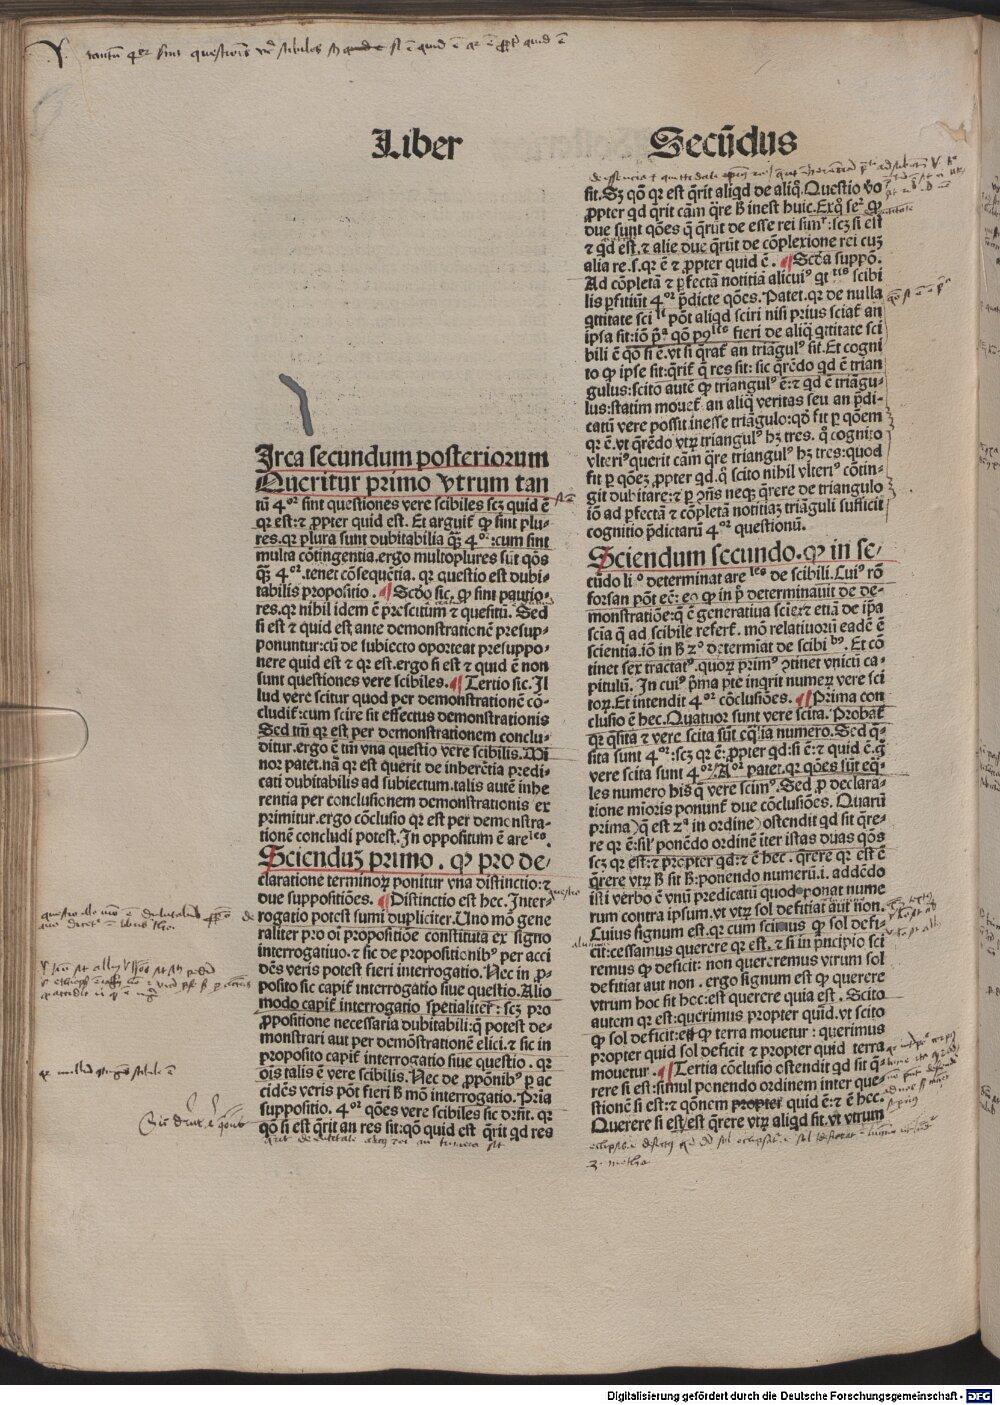 Liber Secūdus
Irca secundum posteriorum
Queritur primo vtrum tan
tū 4ᵒʳ sint questiones vere scibiles scz quid ē
qꝛ est: ⁊ ꝓpter quid est. Et arguit̄ ꝙ sint plu-
res. qꝛ plura sunt dubitabilia qꝫ 4ᵒʳ: cum sint
multa cōtingentia. ergo multoplures sūt qōs
qꝫ 4ᵒʳ. tenet cōsequētia. qꝛ questio est dubi-
tabilis propositio. ¶ Scdo sic. ꝙ sint paucio-
res. qꝛ nihil idem ē prescitum ⁊ quesitū. Sed
si est ⁊ quid est ante demonstrationē presup-
ponuntur: cū de subiecto oporteat presuppo-
nere quid est ⁊ qꝛ est. ergo si est ⁊ quid ē non
sunt questiones vere scibiles. ¶ Tertio sic. Il
lud vere scitur quod per demonstrationē cō-
cludit̄: cum scire sit effectus demonstrationis
Sed tm̄ qꝛ est per demonstrationem conclu-
ditur. ergo ē tm̄ vna questio vere scibilis. Mi
nor patet. nā qꝛ est querit de inherētia predi-
cati dubitabilis ad subiectum. talis autē inhe
rentia per conclusionem demonstrationis ex
primitur. ergo cōclusio qꝛ est per demonstra-
tionē concludi potest. In oppositum ē areˡᵉˢ.
Scienduꝫ primo. ꝙ pro de-
claratione terminoꝝ ponitur vna distinctio: ⁊
due suppositiōes. ¶ Distinctio est hec. Inter-
rogatio potest sumi dupliciter. Uno mō gene
raliter pro oi propositiōe constituta ex signo
interrogatiuo. ⁊ sic de propositionibꝰ per acci
dēs veris potest fieri interrogatio. Nec in ꝓ-
posito sic capit̄ interrogatio siue questio. Alio
modo capit̄ interrogatio spetialiter: scꝫ pro
ꝓpositione necessaria dubitabili: q̄ potest de-
monstrari aut per demōstrationē elici. ⁊ sic in
proposito capit̄ interrogatio siue questio. qꝛ
ois talis ē vere scibilis. Nec de ꝓpōnibꝰ ꝑ ac
cidēs veris pōt fieri ħ mō interrogatio. Pria
suppositio. 4ᵒʳ qōes vere scibiles sic drn̄t. qꝛ
qō si est q̄rit an res sit: qō quid est q̄rit qd res
sit. Sꝫ qō qꝛ est q̄rit aliqd de aliq̊. Questio ꝟo
ꝓpter qd q̄rit cām q̄re ħ inest huic. Exq̊ seꝛ ꝙ
due sunt qōes q̄ q̄rūt de esse rei simꝛ: scꝫ si est
⁊ qd est. ⁊ alie due q̄rūt de cōplexione rei cuꝫ
alia re. s. qꝛ ē ⁊ ꝓpter quid ē. ¶ Scda suppō.
Ad cōpletā ⁊ ꝑfectā notitiā alicuiꝰ qtᵗⁱˢ scibi
lis ꝑfitiūt 4ᵒʳ p̄dicte qōes. Patet. qꝛ de nulla
qttitate sciˡⁱ pōt aliqd sciri nisi prius sciat̄ an
ipsa sit: iō pᵃ qō fieri de aliq̄ qttitate sci
bili ē qō si ē. vt si q̄rat̄ an triāgulꝰ sit. Et cogni
to ꝙ ipse sit: q̄rit̄ q̄ res sit: sic q̄rēdo qd ē trian
gulus: scito autē ꝙ triangulꝰ ē: ⁊ qd ē triāgu-
lus: statim mouet̄ an aliq̄ veritas seu an p̄di-
catū vere possit inesse triāgulo: qd fit ꝑ qōem
qꝛ ē. vt q̄rēdo vtꝝ triangulꝰ hꝫ tres. q̊ cognito
vlteriꝰ querit cām q̄re triangulꝰ hꝫ tres: quod
fit ꝑ qōeꝫ ꝓpter qd. q̊ scito nihil vlteriꝰ cōtin-
git dubitare: ⁊ ꝑ ꝯn̄s neqꝫ q̄rere de triangulo
iō ad ꝑfectā ⁊ cōpletā notitiaꝫ triāguli sufficit
cognitio p̄dictarū 4ᵒʳ questionū.
Sciendum secundo. ꝙ in se-
cūdo liᵒ determinat areˡᵉˢ de scibili. Cuiꝰ rō
forsan pōt eē: eo ꝙ in pᵒ determinauit de de-
monstratiōe: q̄ ē generatiua scientie etiā de ip̄a
scīa q̄ ad scibile refert̄. mō relatiuorū eadē ē
scientia. iō in ħ 2ᵒ determīat de scibiˡⁱᵇꝰ. Et cō
tinet sex tractatꝰ. quoꝝ primꝰ ꝯtinet vnicū ca-
pitulū. In cuiꝰ p̄ma pte inq̄rit numeꝝ vere sci
toꝝ. Et intendit 4ᵒʳ cōclusiōes. ¶ Prima con
clusio ē hec. Quatuor sunt vere scita. Probat̄
qꝛ q̄sita ⁊ vere scita sūt eq̄lia numero. Sed q̄-
sita sunt 4ᵒʳ: scꝫ qꝛ ē: ꝓpter qd: si ē: ⁊ quid ē. g̊
vere scita sunt 4ᵒʳ. Aᵒʳ patet. qꝛ qōes sūt eq̄-
les numero his q̄ vere scimꝰ. Sed ꝓ declara-
tione mīoris ponunt̄ due cōclusiōes. Quarū
prima q̄ est 2ᵃ in ordine ostendit qd sit q̄re-
re qꝛ ē: sil̄ ponēdo ordinē iter istas duas qōs
scꝫ qꝛ est: ⁊ propter qd: ⁊ ē hec. q̄rere qꝛ est ē
q̄rere vtꝝ ħ sit ħ: ponendo numerū. i. addēdo
isti verbo ē vnū predicatū quod ponat nume
rum contra ipsum. vt vtꝝ sol defitiat aut̄ non.
Cuius signum est. qꝛ cum scimus ꝙ sol defi-
cit: cessamus querere qꝛ est. ⁊ si in pncipio sci
remus ꝙ deficit: non quereremus vtrum sol
defitiat aut non. ergo signum est ꝙ querere
vtrum hoc sit hoc: est querere quia est. Scito
autem qꝛ est: querimus propter quid. vt scito
ꝙ sol deficit: et ꝙ terra mouetur: querimus
propter quid sol deficit ⁊ propter quid terra
mouetur. ¶ Tertia cōclusio ostendit qd sit q̄-
rere si est: simul ponendo ordinem inter que-
stionē si est: ⁊ qōnem propter quid ē: ⁊ ē hec.
Querere si est est q̄rere vtꝝ aliqd sit. vt vtrum
Digitalisierung gefördert durch die Deutsche Forschungsgemeinschaft - DFG